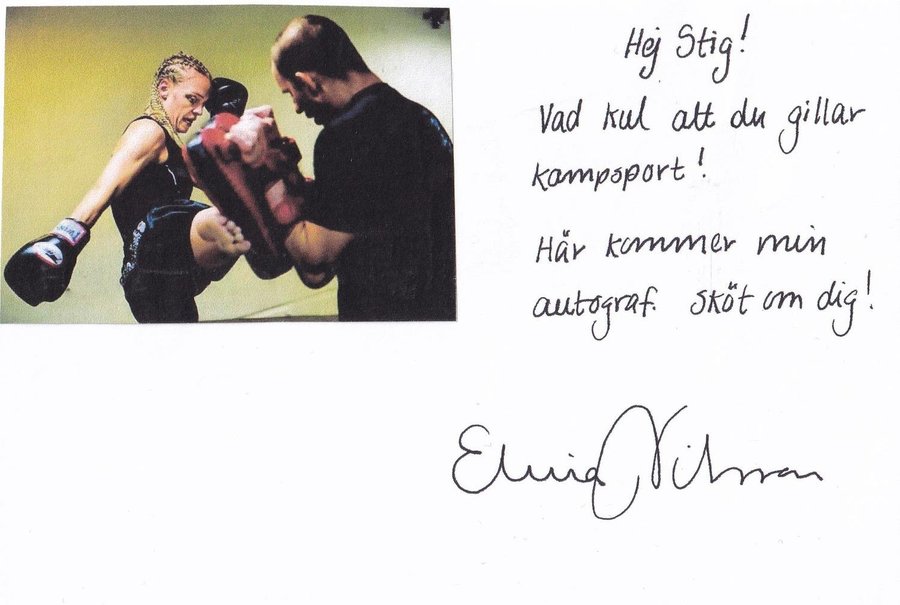 Hej Stig!
Vad kul att du gillar
kampsport!
Här kommer min
autograf. sköt om dig!
Elina Nilsson